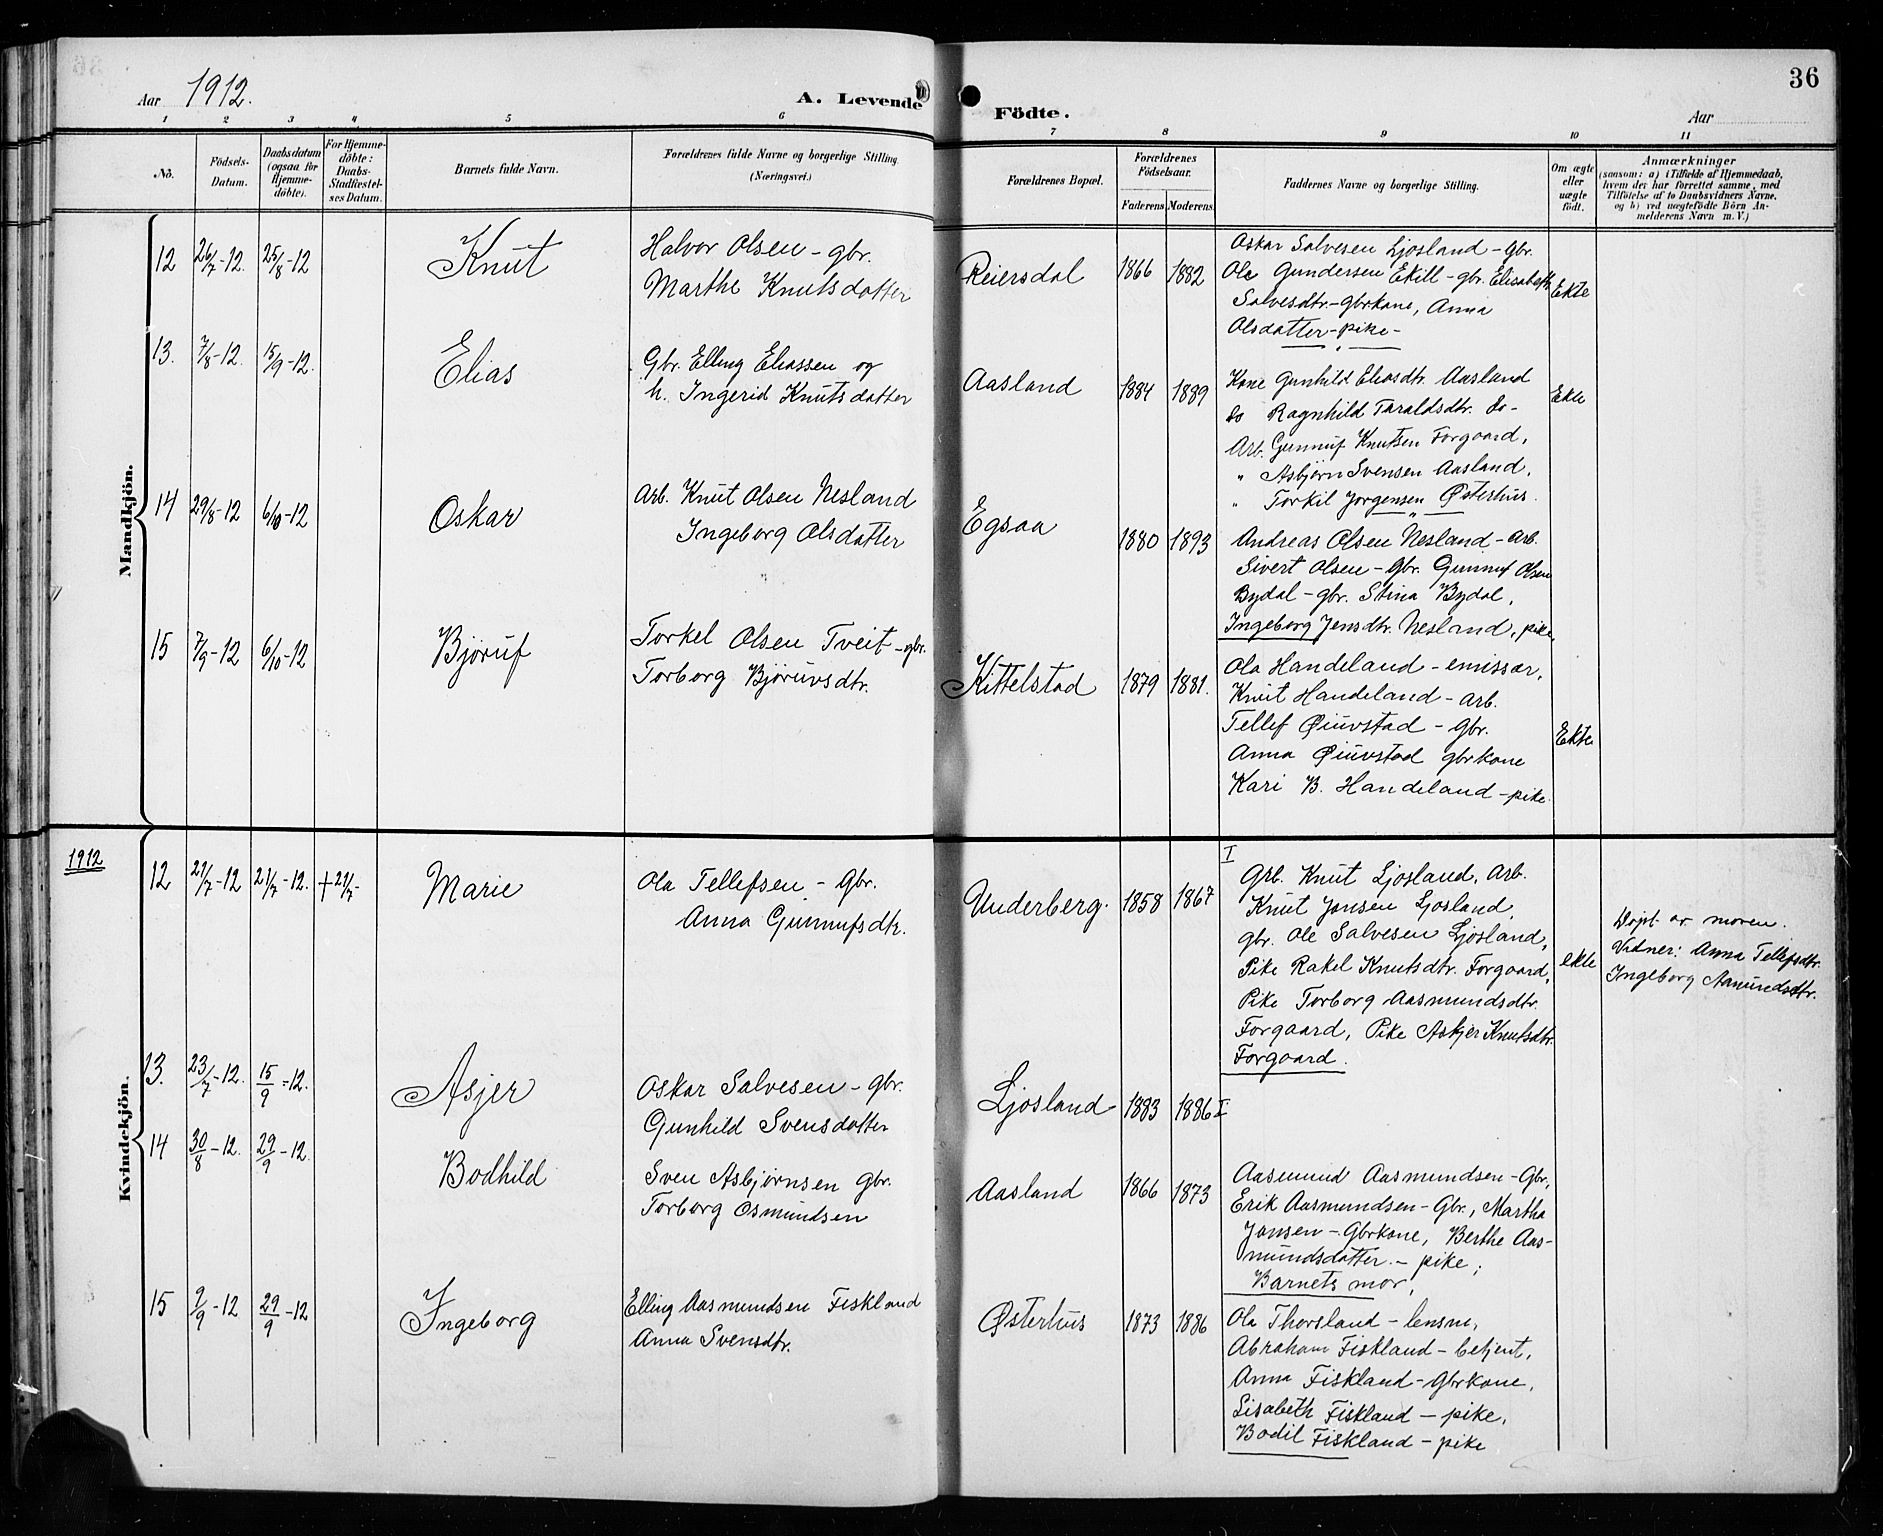 Aar 1912.
A. Levende Födte.
36
Aar
1 2 3 4 5 6 7 8 9 10 11
No.
Födsels-Datum.
Daabsdatum (ogsaa for Hjemmedöbte).
For Hjemmedöbte: Daabs-Stadfæstelses Datum.
Barnets fulde Navn.
Forældrenes fulde Navne og borgerlige Stilling. (Næringsvei.)
Forældrenes Bopæl.
Forældrenes Födselsaar.
Faderens Moderens
Faddernes Navne og borgerlige Stilling.
Om ægte eller uægte födt.
Anmærkninger
(saasom: a) i Tilfælde af Hjemmedaab, hvem der har forrettet samme, med Tilföielse af to Daabsvidners Navne, og b) ved uægtefödte Börn Anmelderens Navn m. V.)
Mandkjön.
12 26/7-12. 25/8-12 Knut
Halvor Olsen - gbr.
Marthe Knutsdatter
Reiersdal 1866 1882
Oskar Salvesen Ljosland - Gbr.
Ola Gundersen Ekill - gbr. Elisabeth
Salvesdtr-gbrkone, Anna
Olsdatter - pike -
Ekte
13. 7/8-12. 15/9-12. Elias
Gbr. Elling Eliassen og
h. Ingerid Knutsdatter
Aasland 1884 1889
Kone Gunhild Eliasdtr. Aasland
do Ragnhild Taraldsdtr. do -
Arb. Gunnuf Knutsen Forgaard,
" Asbjørn Svensen Aasland,
" Torkil Jørgensen Østerhus.
Ekte
14 29/8-12 6/10-12 Oskar
Arb. Knut Olsen Nesland
Ingeborg Olsdatter
Egsaa 1880 1893
Andreas Olsen Nesland - Arb.
Sivert Olsen - Gbr. Gunnuf Olsen
Bydal - gbr. Stina Bydal,
Ingeborg Jensdtr. Nesland, pike.
15 7/9-12 6/10-12 Bjøruf
Torkel Olsen Tveit - gbr.
Torborg Bjøruvsdtr.
Kittelstad 1879 1881.
Ola Handeland - emissær,
Knut Handeland - Arb.
Tellef Øiuvstad - Gbr.
Anna Øiuvstad gbrkone
Kari B. Handeland - pike.
Ekte
1912
Kvindekjön.
12 21/7-12 21/7-12. +21/7- Marie
Ola Tellefsen - Gbr.
Anna Gunnufsdtr.
Underberg. 1858 1867
I
Grb. Knut Ljosland, Arb.
Knut Jansen Ljosland,
gbr. Ole Salvesen Ljosland,
Pike Rakel Knutsdtr. Forgaard,
Pike Torborg Aasmundsdtr.
Forgaard, Pike Asbjer Knutsdtr.
Forgaard.
ekte
Døpt av moren.
Vidner: Anna Tellefsdtr.
Ingeborg Aamundsdtr.
13. 23/7-12. 15/9-12. Asjer
Oskar Salvesen - gbr.
Gunhild Svensdatter
Ljosland 1883 1886 I
14 30/8-12. 29/9-12. Bodhild
Sven Asbjørnsen gbr.
Torborg Osmundsen
Aasland 1866 1873
Aasmund Aasmundsen - Gbr,
Erik Aasmundsen - Gbr., Martha
Jansen - Gbrkone, Berthe Aas-
mundsdatter. - pike;
Barnets mor,
15 9/9-12 29/9-12 Ingeborg
Elling Aasmundsen Fiskland
Anna Svensdtr.
Østerhus 1873 1886
Ola Thorsland - lensm,
Abraham Fiskland - betjent,
Anna Fiskland - Gbrkone,
Lisabeth Fiskland - pike,
Bodil Fiskland - pike